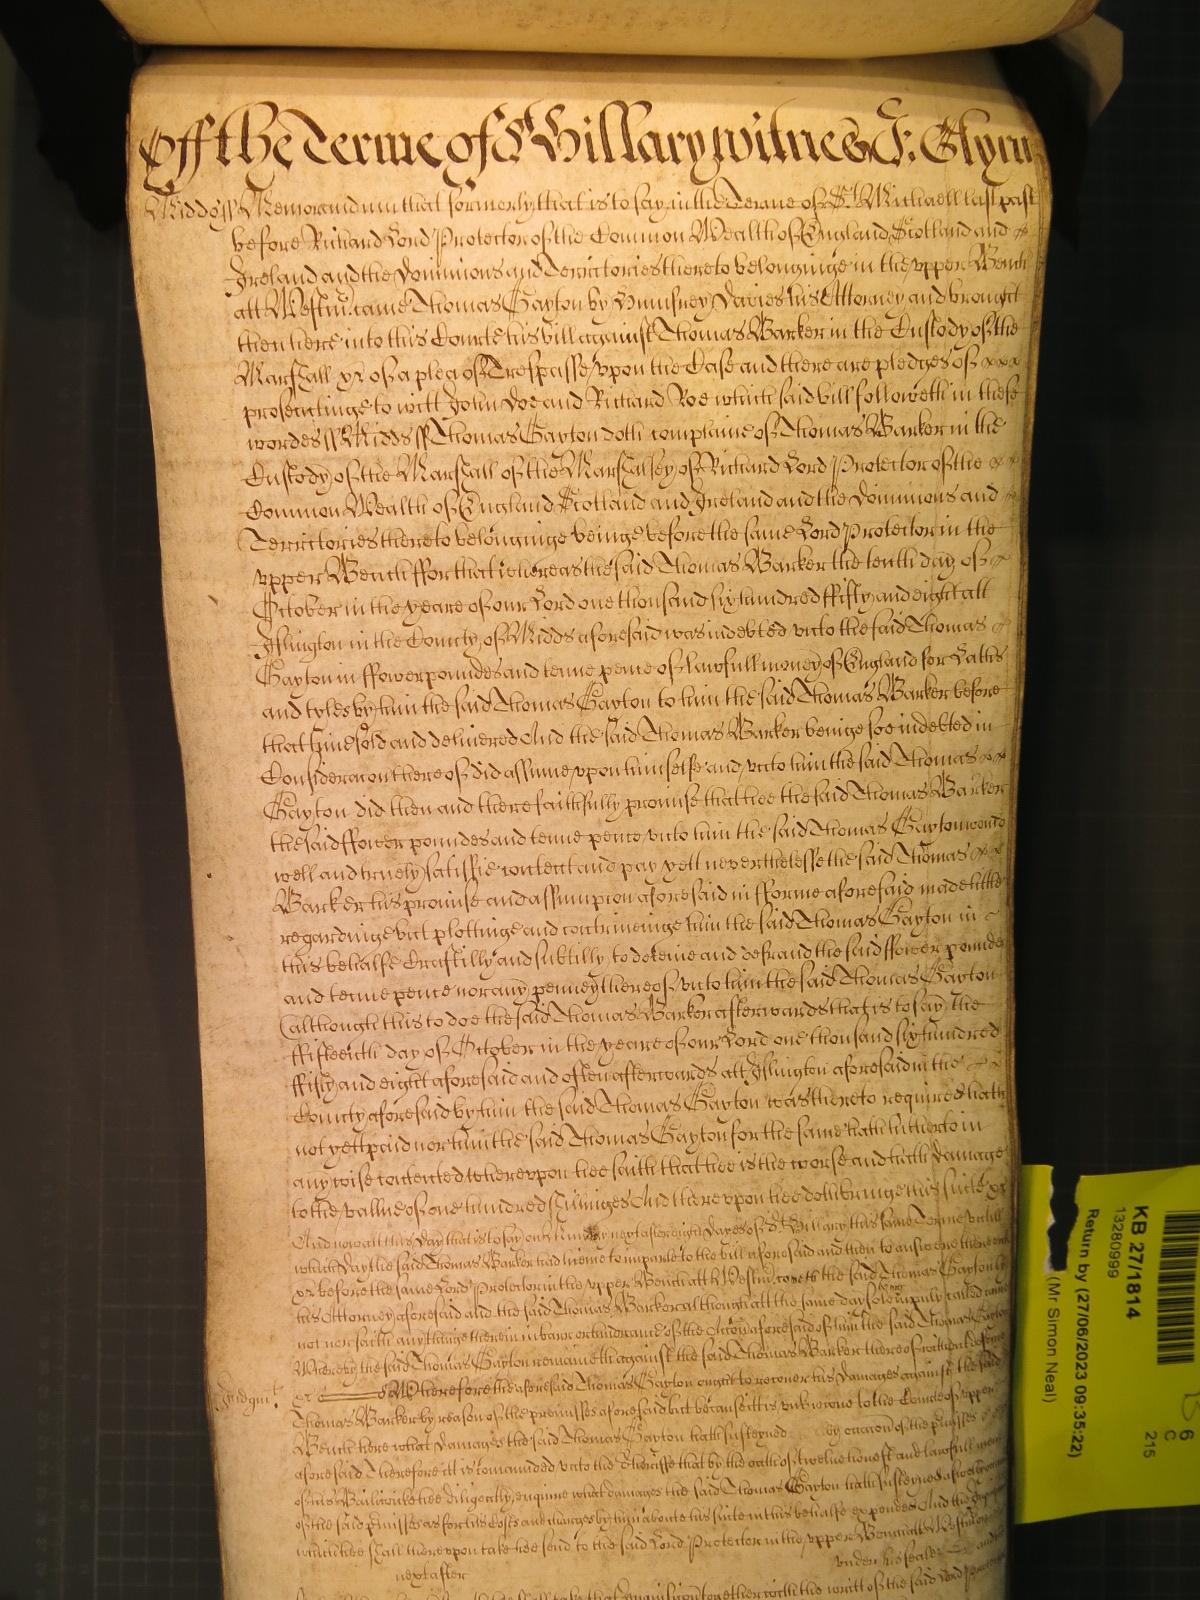 Off the Terme of St Hillary witnes J: Glynn
Midds ss Memorandum that formerly that is to say in the Terme of St Michaell last past
before Richard Lord Protector of the Common Wealth of England Scotland and
Ireland and the Dominions and Territories thereto belonginge in the upper Bench
att Westmr: came Thomas Gayton by Humfrey Davies his Attorney and brought
then here into this Courte his bill against Thomas Barker in the Custody of the
Marshall &c of a plea of Trespasse upon the Case and there are pledges of
prosecutinge to witt John Doe and Richard Roe which said bill followeth in these
wordes ss Midds ss Thomas Gayton doth complaine of Thomas Barker in the
Custody of the Marshall of the Marshalsey of Richard Lord Protector of the
Common Wealth of England Scotland and Ireland and the Dominions and
Territories thereto belonginge beinge before the same Lord Protector in the
upper Bench ffor that whereas the said Thomas Barker the tenth day of
October in the yeare of our Lord one thousand six hundred ffifty and eight att
Islington in the County of Midds aforesaid was indebted unto the said Thomas
Gayton in ffower poundes and tenne pence of lawfull money of England for Laths
and tyles by him the said Thomas Gayton to him the said Thomas Barker before
that time sold and delivered And the said Thomas Barker beinge soe indebted in
Consideracon thereof did assume upon himselfe and unto him the said Thomas
Gayton did then and there faithfully promise that hee the said Thomas Barker
the said ffower poundes and tenne pence unto him the said Thomas Gayton would
well and truely satisfie content and pay yett neverthelesse the said Thomas
Barker his promise and assumpcon aforesaid in fforme aforesaid made little
regardinge but plottinge and contriveinge him the said Thomas Gayton in
this behalfe Craftilly and subtilly to deceive and defraud the said ffower poundes
and tenne pence nor any penney thereof unto him the said Thomas Gayton
(although this to doe the said Thomas Barker afterwards that is to say the
ffifteenth day of October in the yeare of our Lord one thousand six hundred
ffifty and eight aforesaid and often afterwards att Islington aforesaid in the
County aforesaid by him the said Thomas Gayton was thereto required) hath
not yett paid nor him the said Thomas Gayton for the same hath hitherto in
any wise contented whereupon hee saith that hee is the worse and hath damage
to the vallue of one hundred shillinges And thereupon hee doth bringe this suite &c
And now att this day that is to say on next after eight dayes of St Hillary this same Terme untill
which day the said Thomas Barker had licence to imparle to the bill aforesaid and then to answere there
&c before the same Lord Protector in the upper Bench att Westmr cometh the said Thomas Gayton by
his Attorney aforesaid and the said Thomas Barker although att the same day solempnly called came
not nor saith any thinge therein in barr or hindrance of the Accon aforesaid of him the said Thomas Gayton
Whereby the said Thomas Gayton remaineth against the said Thomas Barker thereof without defence
Judgmt. &c Wherefore the aforesaid Thomas Gayton ought to recover his Damages against the said
Thomas Barker by reason of the premisses aforesaid but because itt is unknowne to the Courte of upper
Bench here what Damages the said Thomas Gayton hath susteyned by occasion of the premisses
aforesaid Therefore itt is commanded unto the Sheriffe that by the oathes of twelve honest and lawfull men
of his Bailiwicke hee diligently enquire what damages the said Thomas Gayton hath susteyned
of the said premisses as for his Costes and charges by him about his suite in this behalfe expended And the
which hee shall thereupon take hee send to the said Lord Protector in the upper Bench att Westmr
next after under his seale &c and
together with the writt of the said Lord
KB 27/1814
13280999
Return by (27/06/2023 09:35:22)
(Mr Simon Neal)
6
C
215